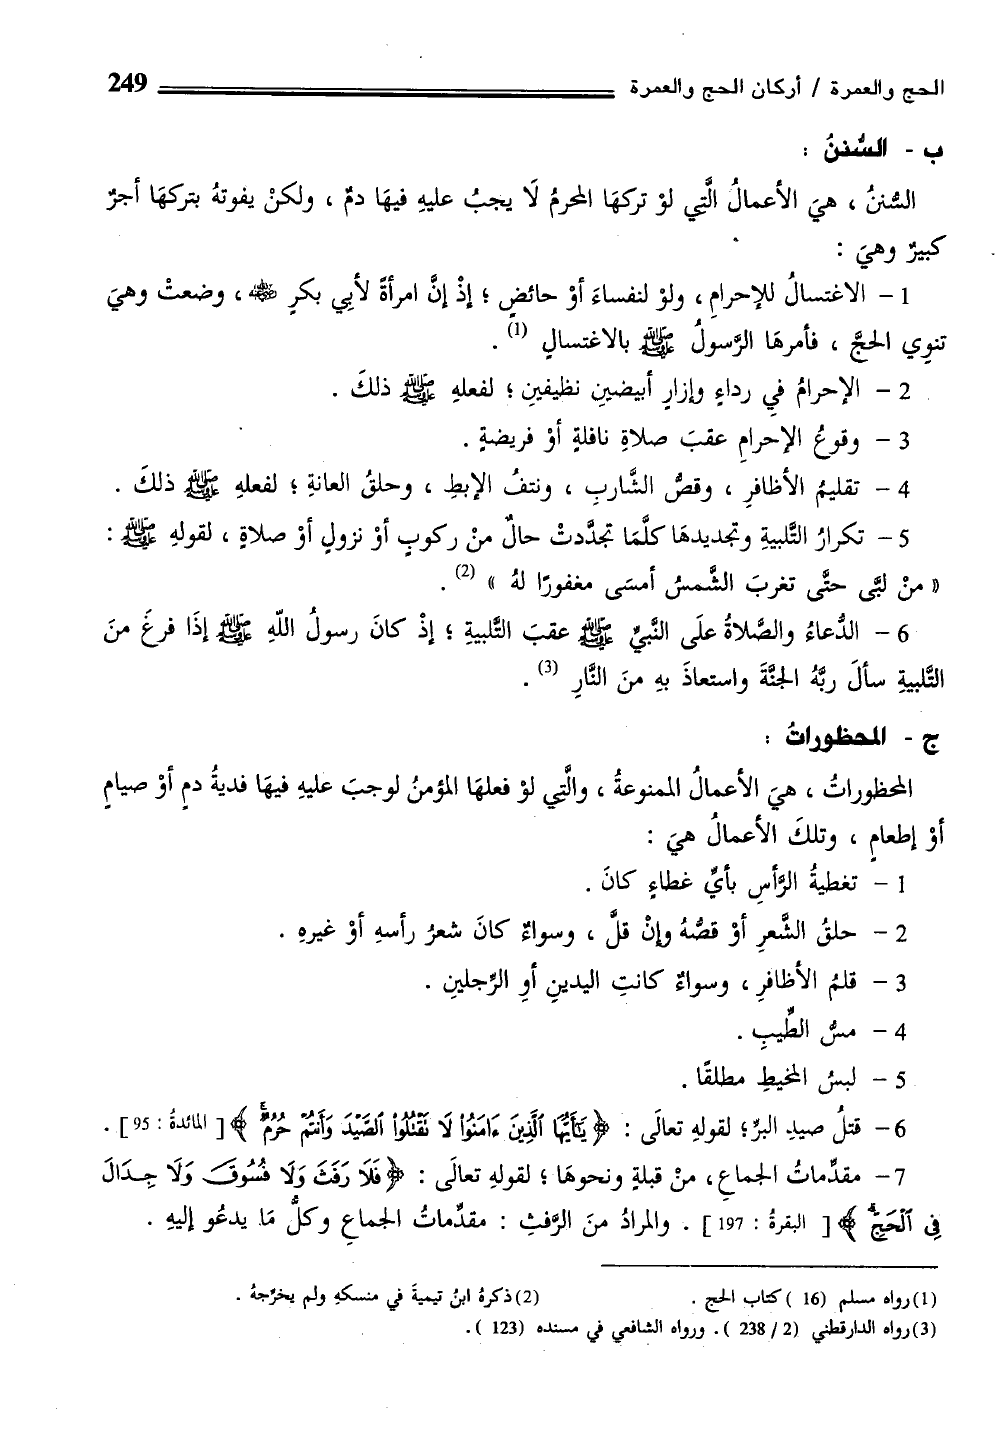 الحج والعمرة / أركان الحج والعمرة 249
ب - السُّننُ :
السُّننُ ، هيَ الأعمالُ الَّتِي لوْ تركهَا المحرمُ لَا يجبُ عليهِ فيهَا دمٌ ، ولكنْ يفوتهُ بتركهَا أجرٌ
كبيرٌ وهيَ :
1 - الاغتسالُ للإحرامِ ، ولوْ لنفساءَ أوْ حائضٍ ؛ إذْ إنَّ امرأةً لأبِي بكرٍ رضي الله عنه ، وضعتْ وهيَ
تنوِي الحجَّ ، فأمرهَا الرَّسولُ ﷺ بالاغتسالِ (1) .
2 - الإحرامُ فِي رداءٍ وإزارٍ أبيضينِ نظيفينِ ؛ لفعلهِ ﷺ ذلكَ .
3 - وقوعُ الإحرامِ عقبَ صلاةِ نافلةٍ أوْ فريضةٍ .
4 - تقليمُ الأظافرِ ، وقصُّ الشَّاربِ ، ونتفُ الإبطِ ، وحلقُ العانةِ ؛ لفعلهِ ﷺ ذلكَ .
5 - تكرارُ التَّلبيةِ وتجديدهَا كلَّمَا تجدَّدتْ حالٌ منْ ركوبٍ أوْ نزولٍ أوْ صلاةٍ ، لقولهِ ﷺ :
« منْ لبَّى حتَّى تغربَ الشَّمسُ أمسَى مغفورًا لهُ » (2) .
6 - الدُّعاءُ والصَّلاةُ علَى النَّبيِّ ﷺ عقبَ التَّلبيةِ ؛ إذْ كانَ رسولُ اللهِ ﷺ إذَا فرغَ منَ
التَّلبيةِ سألَ ربَّهُ الجنَّةَ واستعاذَ بهِ منَ النَّارِ (3) .
ج - المحظوراتُ :
المحظوراتُ ، هيَ الأعمالُ الممنوعةُ ، والَّتِي لوْ فعلهَا المؤمنُ لوجبَ عليهِ فيهَا فديةُ دمٍ أوْ صيامٍ
أوْ إطعامٍ ، وتلكَ الأعمالُ هيَ :
1 - تغطيةُ الرَّأسِ بأيِّ غطاءٍ كانَ .
2 - حلقُ الشَّعرِ أوْ قصُّهُ وإنْ قلَّ ، وسواءٌ كانَ شعرُ رأسهِ أوْ غيرهِ .
3 - قلمُ الأظافرِ ، وسواءٌ كانتِ اليدينِ أوِ الرِّجلينِ .
4 - مسُّ الطِّيبِ .
5 - لبسُ المخيطِ مطلقًا .
6 - قتلُ صيدِ البرِّ؛ لقولهِ تعالَى : ﴿ يَٰٓأَيُّهَا ٱلَّذِينَ ءَامَنُوا۟ لَا تَقْتُلُوا۟ ٱلصَّيْدَ وَأَنتُمْ حُرُمٌ ۚ ﴾ [ المائدةُ : 95 ] .
7 - مقدِّماتُ الجماعِ ، منْ قبلةٍ ونحوهَا ؛ لقولهِ تعالَى : ﴿ فَلَا رَفَثَ وَلَا فُسُوقَ وَلَا جِدَالَ
فِى ٱلْحَجِّ ۗ ﴾ [ البقرةُ : 197 ] . والمرادُ منَ الرَّفثِ : مقدِّماتُ الجماعِ وكلُّ مَا يدعُو إليهِ .
(1) رواه مسلم ( 16 ) كتاب الحج . (2) ذكرهُ ابنُ تيميةَ في منسكهِ ولم يخرِّجهُ .
(3) رواه الدارقطني ( 2 / 238 ) . ورواه الشافعي في مسنده ( 123 ) .